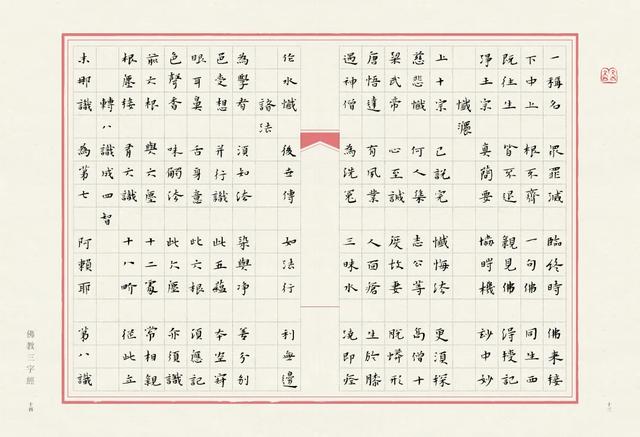 一稱名 眾罪滅 臨終時 佛來接
下中上 根不齊 一句佛 同生西
既往生 皆不退 親見佛 得授記
淨土宗 真簡要 協時機 妙中妙
懺灋
上十宗 已說完 懺悔法 更須探
慈悲懺 何人集 志公等 高僧十
梁武帝 心至誠 度故妻 脫蟒形
唐悟達 有夙業 人面瘡 生於膝
遇神僧 為洗冤 三昧水 澆即痊
作水懺 後世傳 如法行 利無邊
諸法
為學者 須知法 染與淨 善分別
色受想 并行識 此五蘊 本空寂
眼耳鼻 舌身意 此六根 須應記
色聲香 味觸法 此六塵 亦須識
前六根 與六塵 十二處 常相親
根塵接 有六識 十八界 從此立
轉八識成四智
末那識 為第七 阿賴耶 第八識
佛教三字經
十四
十三